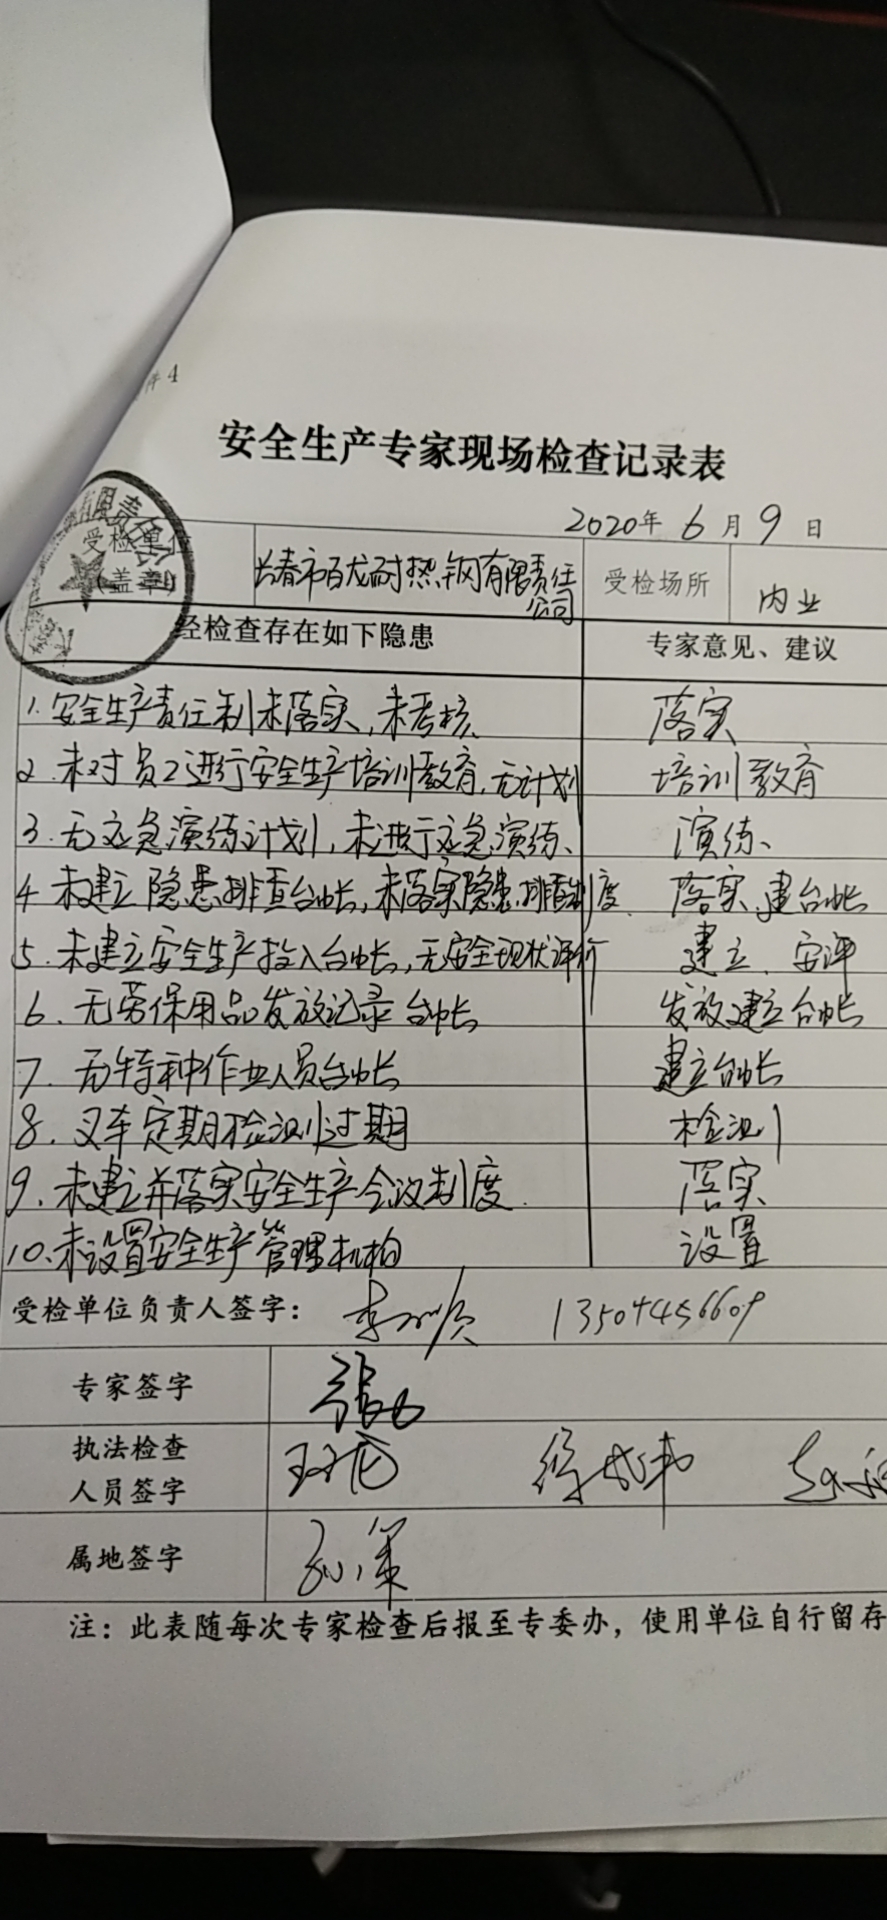 件 4
安全生产专家现场检查记录表
2020年 6月 9日
受检单位
(盖章)
长春市百龙耐热钢有限责任
公司
受检场所
内业
经检查存在如下隐患
专家意见、建议
1. 安全生产责任制未落实,未考核、
落实
2. 未对员工进行安全生产培训教育,无计划
培训教育
3. 无应急演练计划,未进行应急演练、
演练、
4 未建立隐患排查台帐,未落实隐患排查制度.
落实、建台帐
5. 未建立安全生产投入台帐,无安全现状评价
建立、安评
6. 无劳保用品发放记录台帐
发放建立台帐
7. 无特种作业人员台帐
建立台帐
8. 叉车定期检测过期
检测
9. 未建立并落实安全生产会议制度.
落实
10.未设置安全生产管理机构
设置
受检单位负责人签字:
13504456609
专家签字
执法检查
人员签字
属地签字
注:此表随每次专家检查后报至专委办,使用单位自行留存